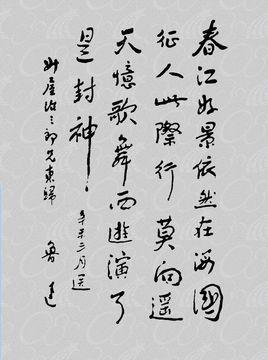 春江好景依然在海國
征人此際行莫向遥
天憶歌舞西遊演了
是封神！辛未三月送
升屋治三郎兄東歸 魯迅